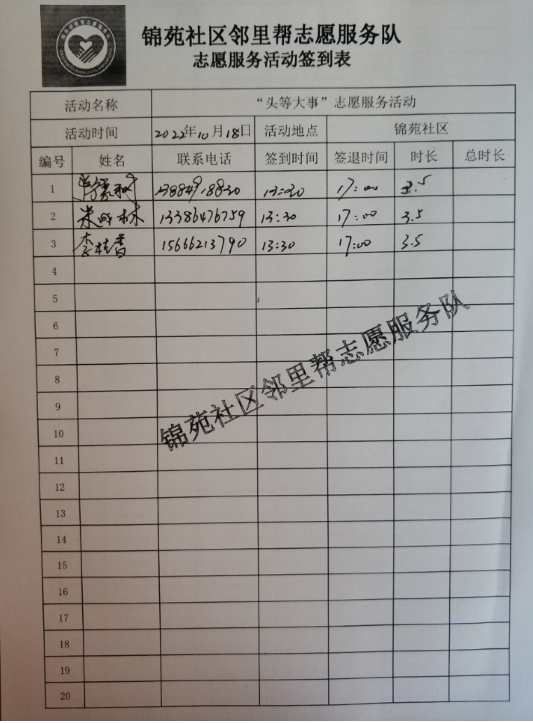 锦苑社区邻里帮志愿服务队
志愿服务活动签到表
活动名称 “头等大事”志愿服务活动
活动时间 2022年10月18日 活动地点 锦苑社区
编号 姓名 联系电话 签到时间 签退时间 时长 总时长
1 13:30 17:00 3.5
2 13386476759 13:30 17:00 3.5
3 李桂香 15666213790 13:30 17:00 3.5
4
5
6
7
8
9
10
11
12
13
14
15
16
17
18
19
20
锦苑社区邻里帮志愿服务队